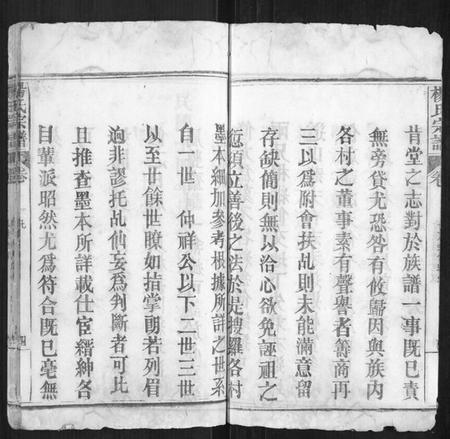 楊氏宗譜
卷
肯堂之志對於族譜一事既巳責
無旁貸尤恐咎有攸歸因與族內
各村之董事素有聲譽者籌商再
三以為附會扶乩則未能滿意留
存缺簡則無以洽心欲免誣祖之
愆須立善後之法於是搜羅各村
墨本細加參考根據所詳之世系
自一世 仲祥公以下二世三世
以至廿餘世瞭如指掌朗若列眉
迥非謬托乩仙妄為判斷者可比
且推查墨本所詳載仕宦縉紳各
目輩派昭然尤為符合既巳毫無
楊氏宗譜
卷
四